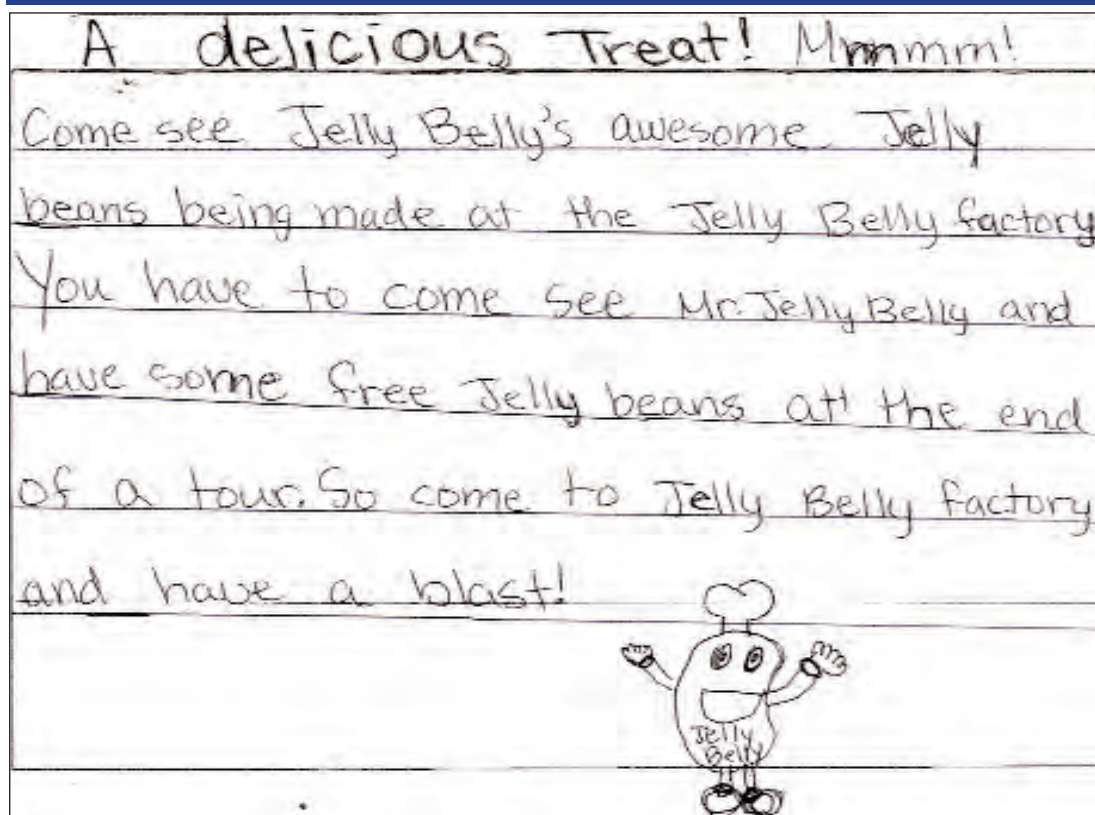 A delicious Treat! Mmmmm!
Come see Jelly Belly's awesome Jelly
beans being made at the Jelly Belly factory
You have to come see Mr. Jelly Belly and
have some free Jelly beans at the end
of a tour. So come to Jelly Belly factory
and have a blast!
Jelly
Belly